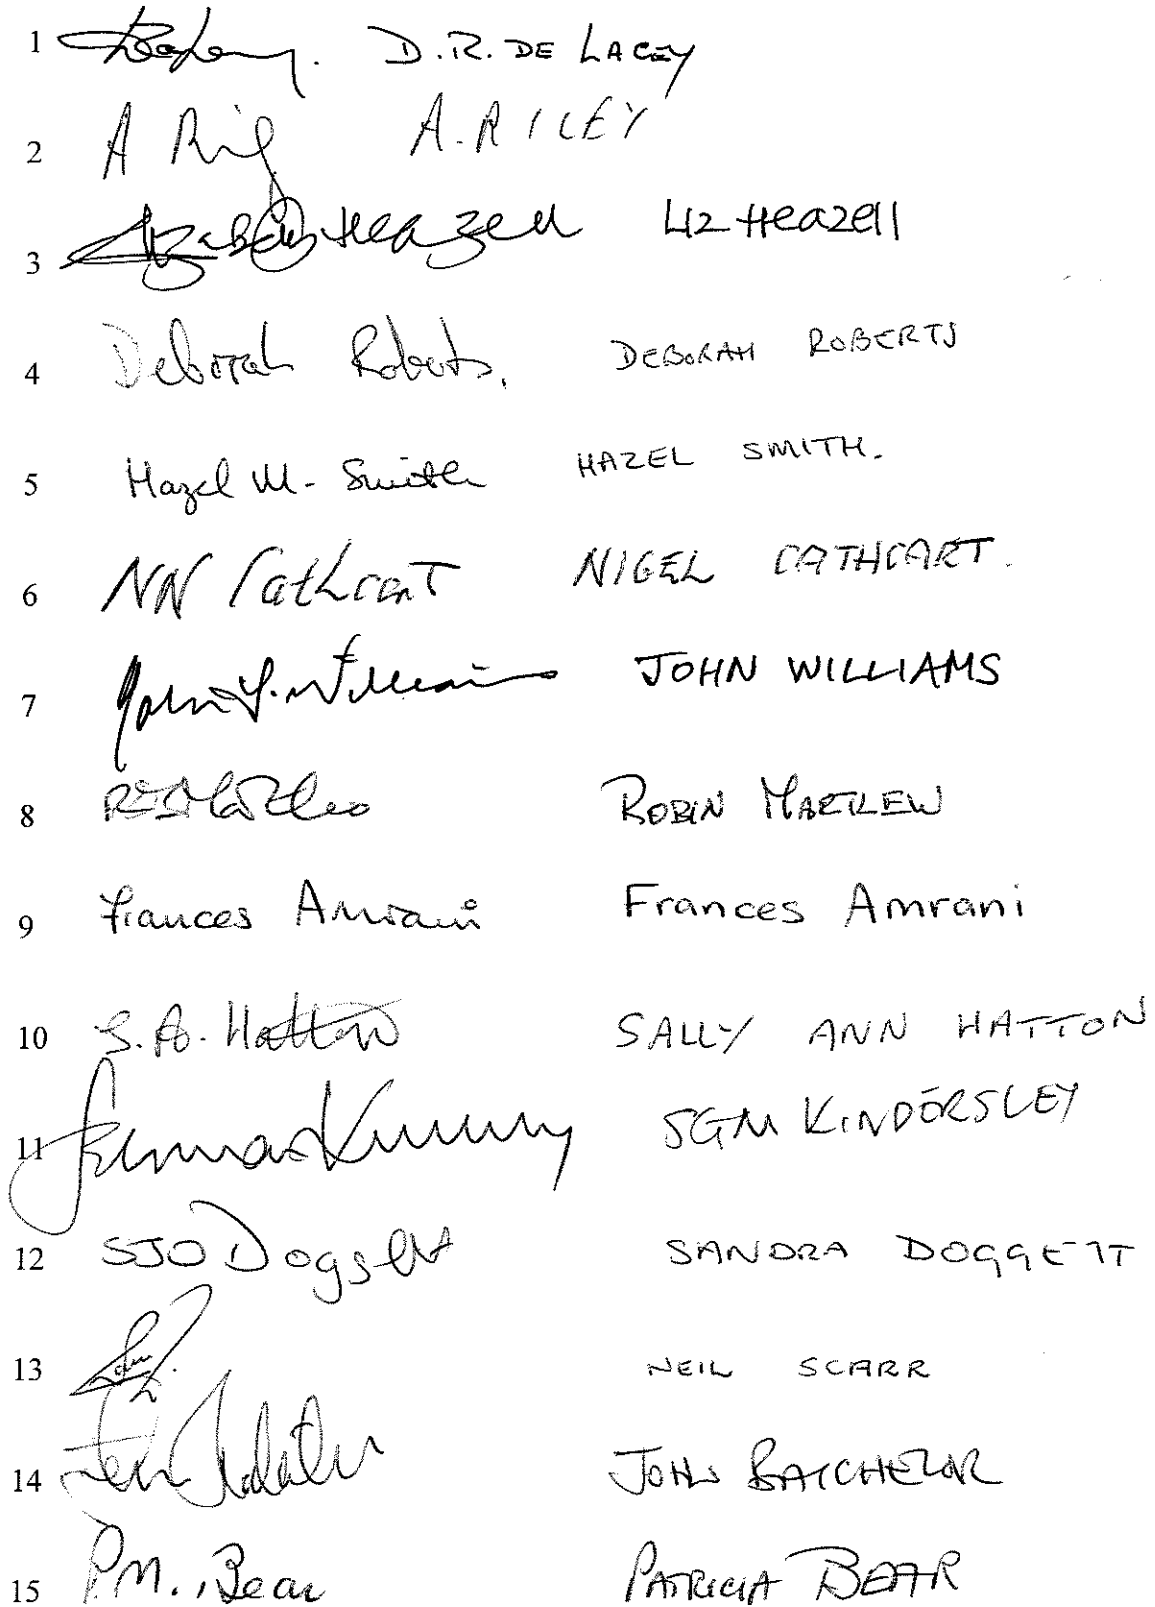 1 D.R. DE LACEY
2 A Riley A. RILEY
3 Elizabeth Heazell Liz Heazell
4 Deborah Roberts. DEBORAH ROBERTS
5 Hazel M. Smith HAZEL SMITH.
6 NN Cathcart NIGEL CATHCART.
7 John G. Williams JOHN WILLIAMS
8 ROBIN MARTLEW
9 Frances Amrani Frances Amrani
10 S. A. Hatton SALLY ANN HATTON
11 SGM KINDERSLEY
12 SJO Doggett SANDRA DOGGETT
13 NEIL SCARR
14 JOHN BATCHELOR
15 P.M. Bear PATRICIA BEAR